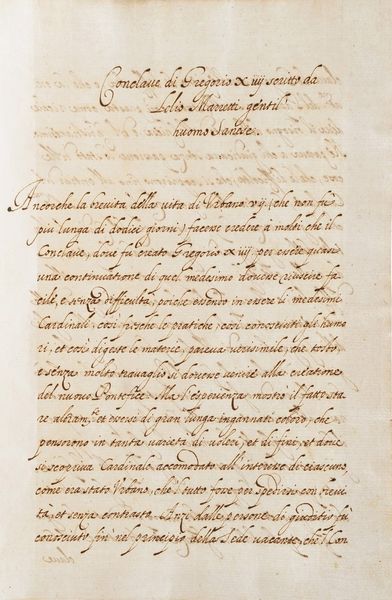 Conclave di Gregorio xiiij scritto da
Lelio Maretti gentil'
huomo Sanese.
Ancorche la brevità della vita di Urbano vij (che non fù
più lunga di dodici giorni) facesse credere à molti che il
Conclave, dove fu creato Gregorio xiiij per essere quasi
una continuatione di quel medesimo dovesse riuscire fa
cile, e senza difficultà, poiche essendo in essere li medesimi
Cardinali, così fresche le pratiche, così conosciuti gli humo
ri, et così digeste le materie, pareva verisimile, che tosto,
e senza molto travaglio si dovesse venire alla creatione
del nuovo Pontefice. Ma l'esperienza mostrò il fatto sta
re altram.te et essersi di gran lunga ingannati coloro, che
pensorono in tanta varietà di voleri, et di fini, et dove
si scopriva Cardinale accomodato all'interesse di ciascuno,
come era stato Urbano, che'l tutto fosse per spedirsi con brevi
tà, et senza contrasto. Anzi dalle persone di giuditio fù
conosciuto fin nel principio della Sede vacante, che'l Con
clave